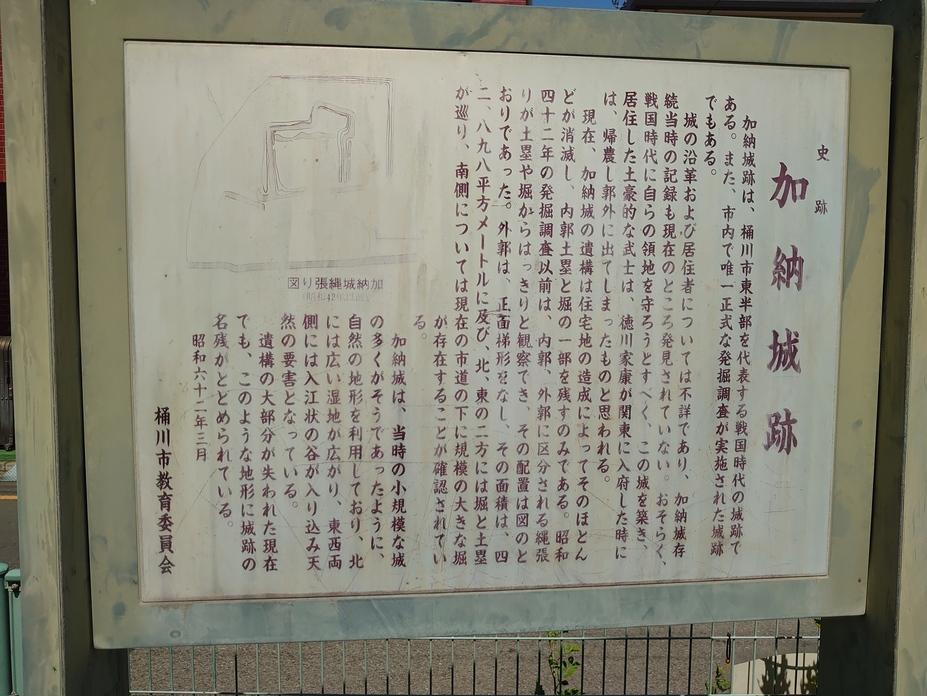 史跡
加納城跡
加納城跡は、桶川市東半部を代表する戦国時代の城跡で
ある。また、市内で唯一正式な発掘調査が実施された城跡
でもある。
城の沿革および居住者については不詳であり、加納城存
続当時の記録も現在のところ発見されていない。おそらく、
戦国時代に自らの領地を守ろうとすべく、この城を築き、
居住した土豪的な武士は、徳川家康が関東に入府した時に
は、帰農し郭外に出てしまったものと思われる。
現在、加納城の遺構は住宅地の造成によってそのほとん
どが消滅し、内郭土塁と堀の一部を残すのみである。昭和
四十二年の発掘調査以前は、内郭、外郭に区分される縄張
りが土塁や堀からはっきりと観察でき、その配置は図のと
おりであった。外郭は、正面梯形をなし、その面積は、四
二、八九八平方メートルに及び、北、東の二方には堀と土塁
が巡り、南側については現在の市道の下に規模の大きな堀
が存在することが確認されてい
る。
加納城は、当時の小規模な城
の多くがそうであったように、
自然の地形を利用しており、北
には広い湿地が広がり、東西両
側には入江状の谷が入り込み天
然の要害となっている。
遺構の大部分が失われた現在
でも、このような地形に城跡の
名残がとどめられている。
昭和六十二年三月
桶川市教育委員会
加納城縄張り図